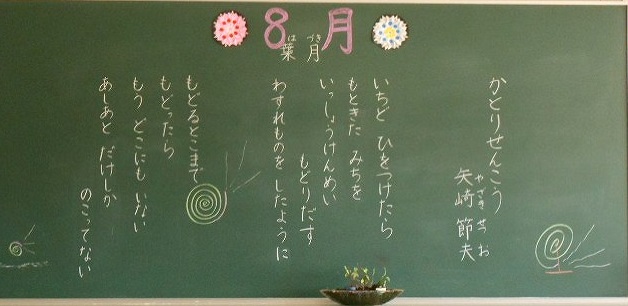 8月
葉月
はづき
かとりせんこう
矢崎 節夫
やざき せつお
いちど ひをつけたら
もときた みちを
いっしょうけんめい
もどりだす
わすれものを したように
もどるとこまで
もどったら
もう どこにも いない
あしあと だけしか
のこってない